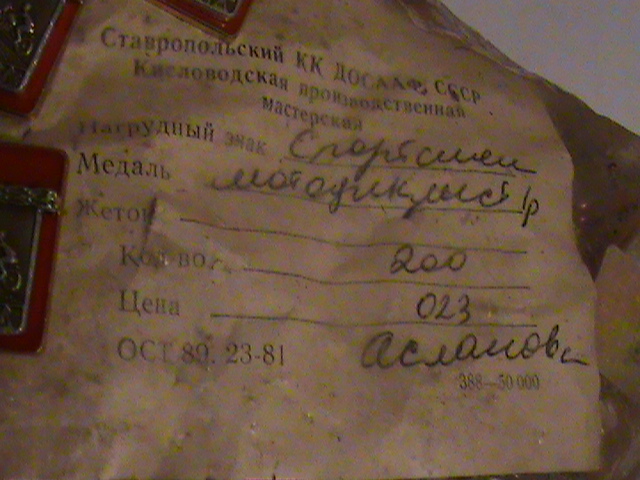 Ставропольский КК ДОСААФ СССР
Кисловодская производственная
мастерская
Нагрудный знак Спортсмен
Медаль мотоциклист 1р
Жетон
Кол-во 200
Цена 023
ОСТ 89. 23-81 Асланова
388—50 000